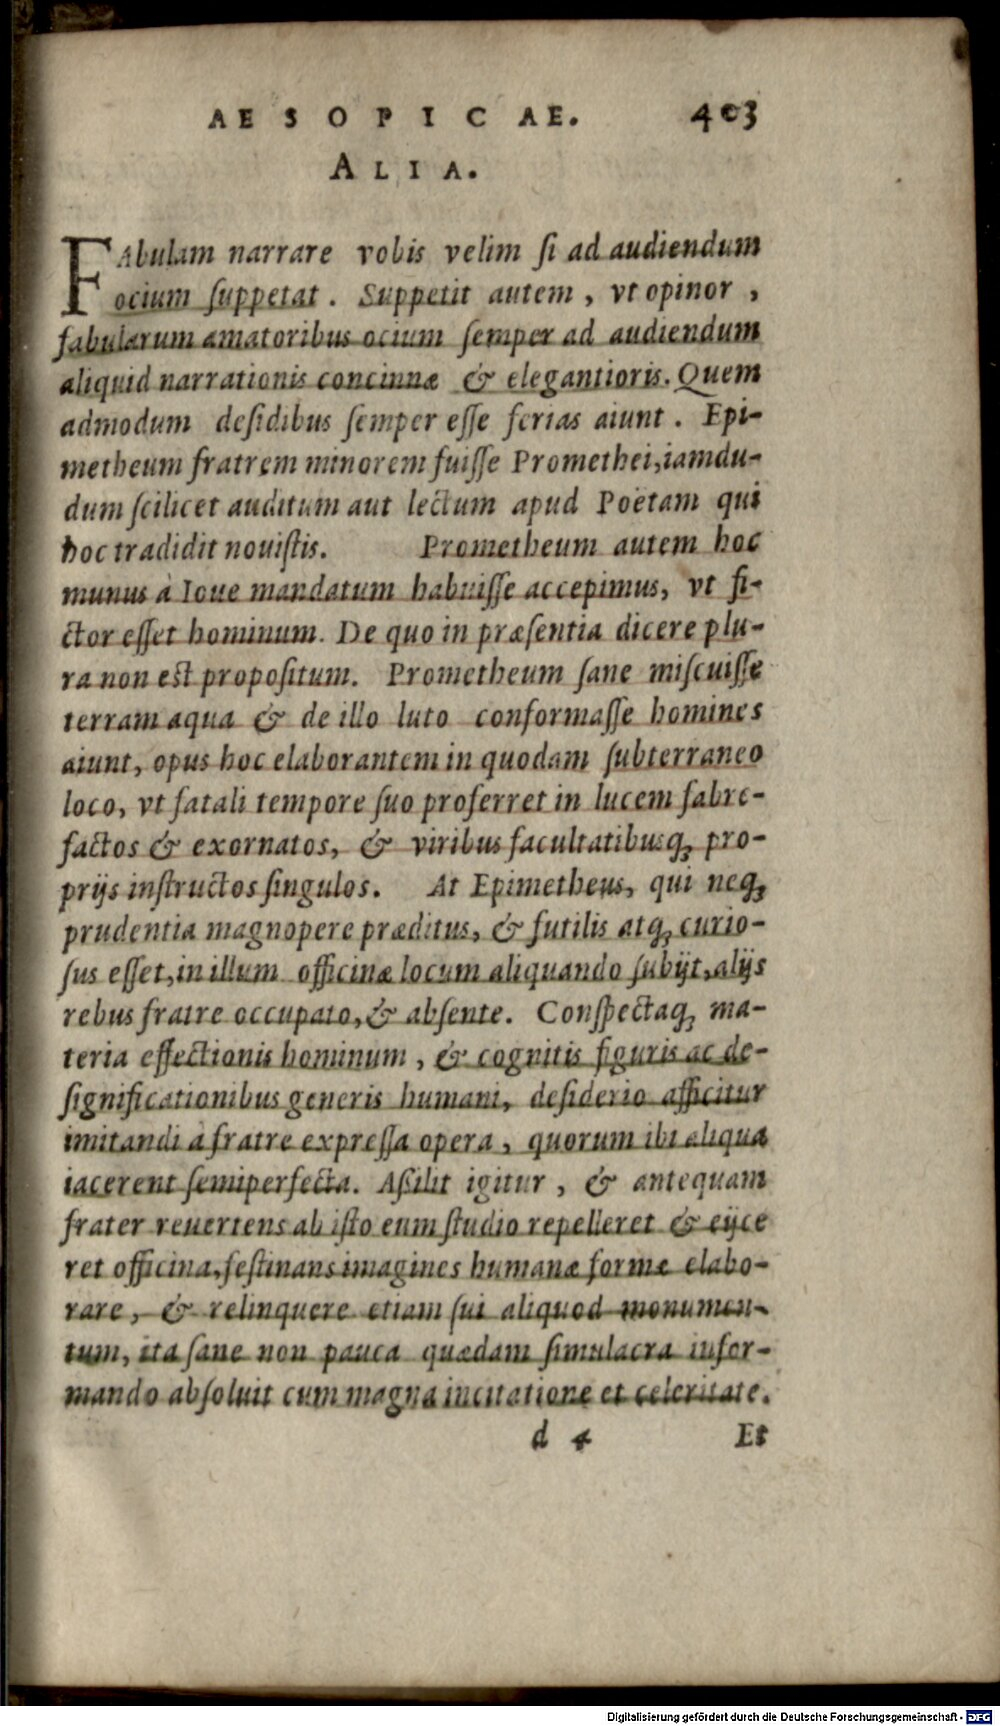 AESOPICAE. 403
ALIA.
FAbulam narrare vobis velim ſi ad audiendum
ocium ſuppetat. Suppetit autem, vt opinor,
fabularum amatoribus ocium ſemper ad audiendum
aliquid narrationis concinnæ & elegantioris. Quem
admodum deſidibus ſemper eſſe ferias aiunt. Epi-
metheum fratrem minorem fuiſſe Promethei, iamdu-
dum ſcilicet auditum aut lectum apud Poëtam qui
hoc tradidit nouiſtis. Prometheum autem hoc
munus à Ioue mandatum habuiſſe accepimus, vt fi-
ctor eſſet hominum. De quo in præſentia dicere plu-
ra non est propoſitum. Prometheum ſane miſcuiſſe
terram aqua & de illo luto conformaſſe homines
aiunt, opus hoc elaborantem in quodam ſubterraneo
loco, vt fatali tempore ſuo proferret in lucem fabre-
factos & exornatos, & viribus facultatibusq́; pro-
prijs inſtructos ſingulos. At Epimetheus, qui neq;
prudentia magnopere præditus, & futilis atq; curio-
ſus eſſet, in illum officinæ locum aliquando ſubijt, alijs
rebus fratre occupato, & abſente. Conſpectaq; ma-
teria effectionis hominum, & cognitis figuris ac de-
ſignificationibus generis humani, deſiderio afficitur
imitandi à fratre expreſſa opera, quorum ibi aliqua
iacerent ſemiperfecta. Aſſilit igitur, & antequam
frater reuertens ab iſto eum ſtudio repelleret & eijce
ret officina, feſtinans imagines humanæ formæ elabo-
rare, & relinquere etiam ſui aliquod monumen-
tum, ita ſane non pauca quædam ſimulacra infor-
mando abſoluit cum magna incitatione et celeritate.
d 4 Et
Digitalisierung gefördert durch die Deutsche Forschungsgemeinschaft - DFG